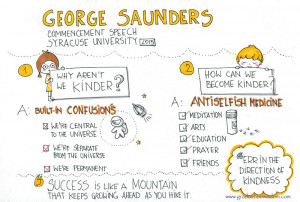 GEORGE SAUNDERS
COMMENCEMENT SPEECH
SYRACUSE UNIVERSITY 2013
1
WHY AREN'T
WE KINDER?
A: BUILT-IN CONFUSIONS
WE'RE CENTRAL
TO THE UNIVERSE
WE'RE SEPARATE
FROM THE UNIVERSE
WE'RE PERMANENT
2
HOW CAN WE
BECOME KINDER?
A: ANTISELFISH MEDICINE
MEDITATION
ARTS
EDUCATION
PRAYER
FRIENDS
ERR IN THE
DIRECTION OF
KINDNESS
SUCCESS IS LIKE A MOUNTAIN
THAT KEEPS GROWING AHEAD AS YOU HIKE IT.